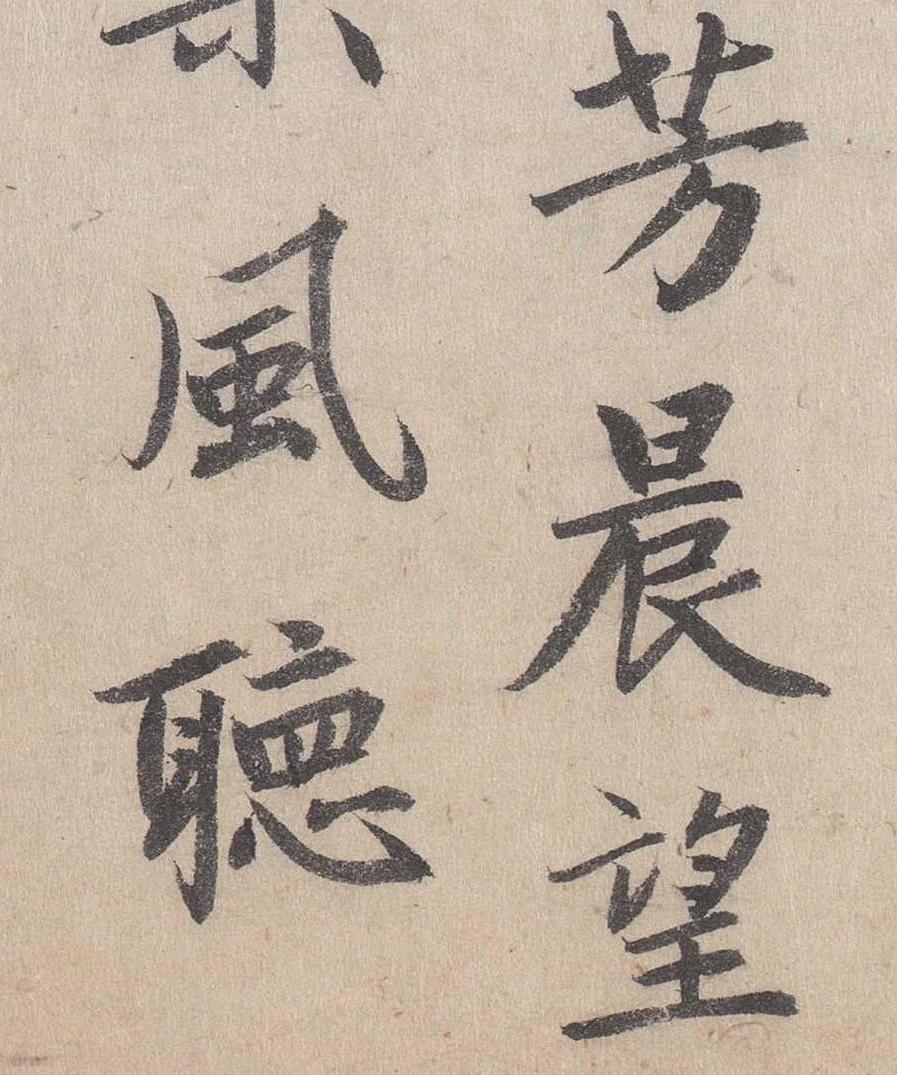 芳晨望
風聽